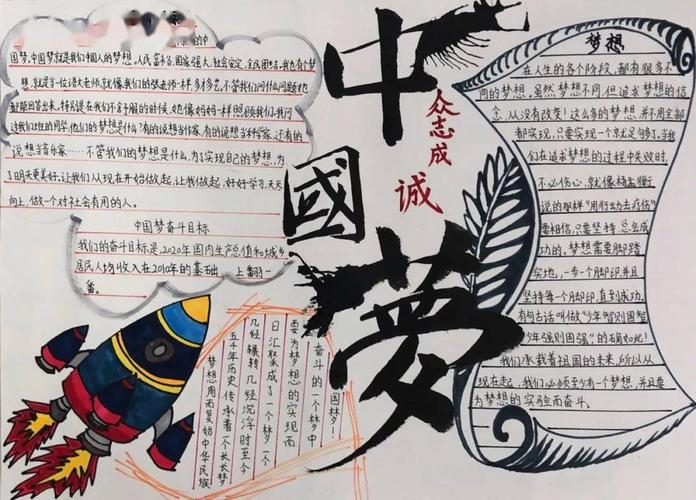 的中
国梦,中国梦就是我们中国人的梦想。人民富裕,国家强大,社会安定,全民团结。我也有个梦
想,就是当一位语文老师,就像我们的张老师一样,多才多艺。不管我们问什么问题她
都能回答出来。特别是在我们不舒服的时候,她像妈妈一样照顾我们。我问
过我们班的同学,他们的梦想是什么?有的说想当作家,有的说想当科学家,还有的
说想当音乐家……不管我们的梦想是什么,为了实现自己的梦想,为
了明天更美好,让我们从现在开始做起,让我做起,好好学习,天天
向上,做一个对社会有用的人。
中国梦奋斗目标
我们的奋斗目标是,2020年国内生产总值和城乡
居民人均收入在2010年的基础上翻一
番。
中
國
夢
众志成
诚
国梦!
奋斗的一个梦中
要为梦想的实现而
日汇聚成了一个梦一个
几经辗转几经沉浮时至今
五千年历史传承着一个长长梦
梦想周而复始中华民族
梦想
在人生的各个阶段,都有很多不
同的梦想。虽然梦想不同但追求梦想的信
念,从没有改变!这么多的梦想,并不用全部
都实现,只要实现一个就足够了。当我
们在追求梦想的过程中失败时,
不必伤心,就像杨孟衡
说的那样"用行动去疗伤"
要相信,只要坚持,总会成
功的。梦想需要脚踏
实地,一步一个脚印,并且
坚持每一个脚印,直到成功。
有句古话叫做"少年智则国智
少年强则国强"的确如此!
我们承载着祖国的未来,所以从
现在起,我们必须至少有一个梦想,并且要
为梦想的实验而奋斗。